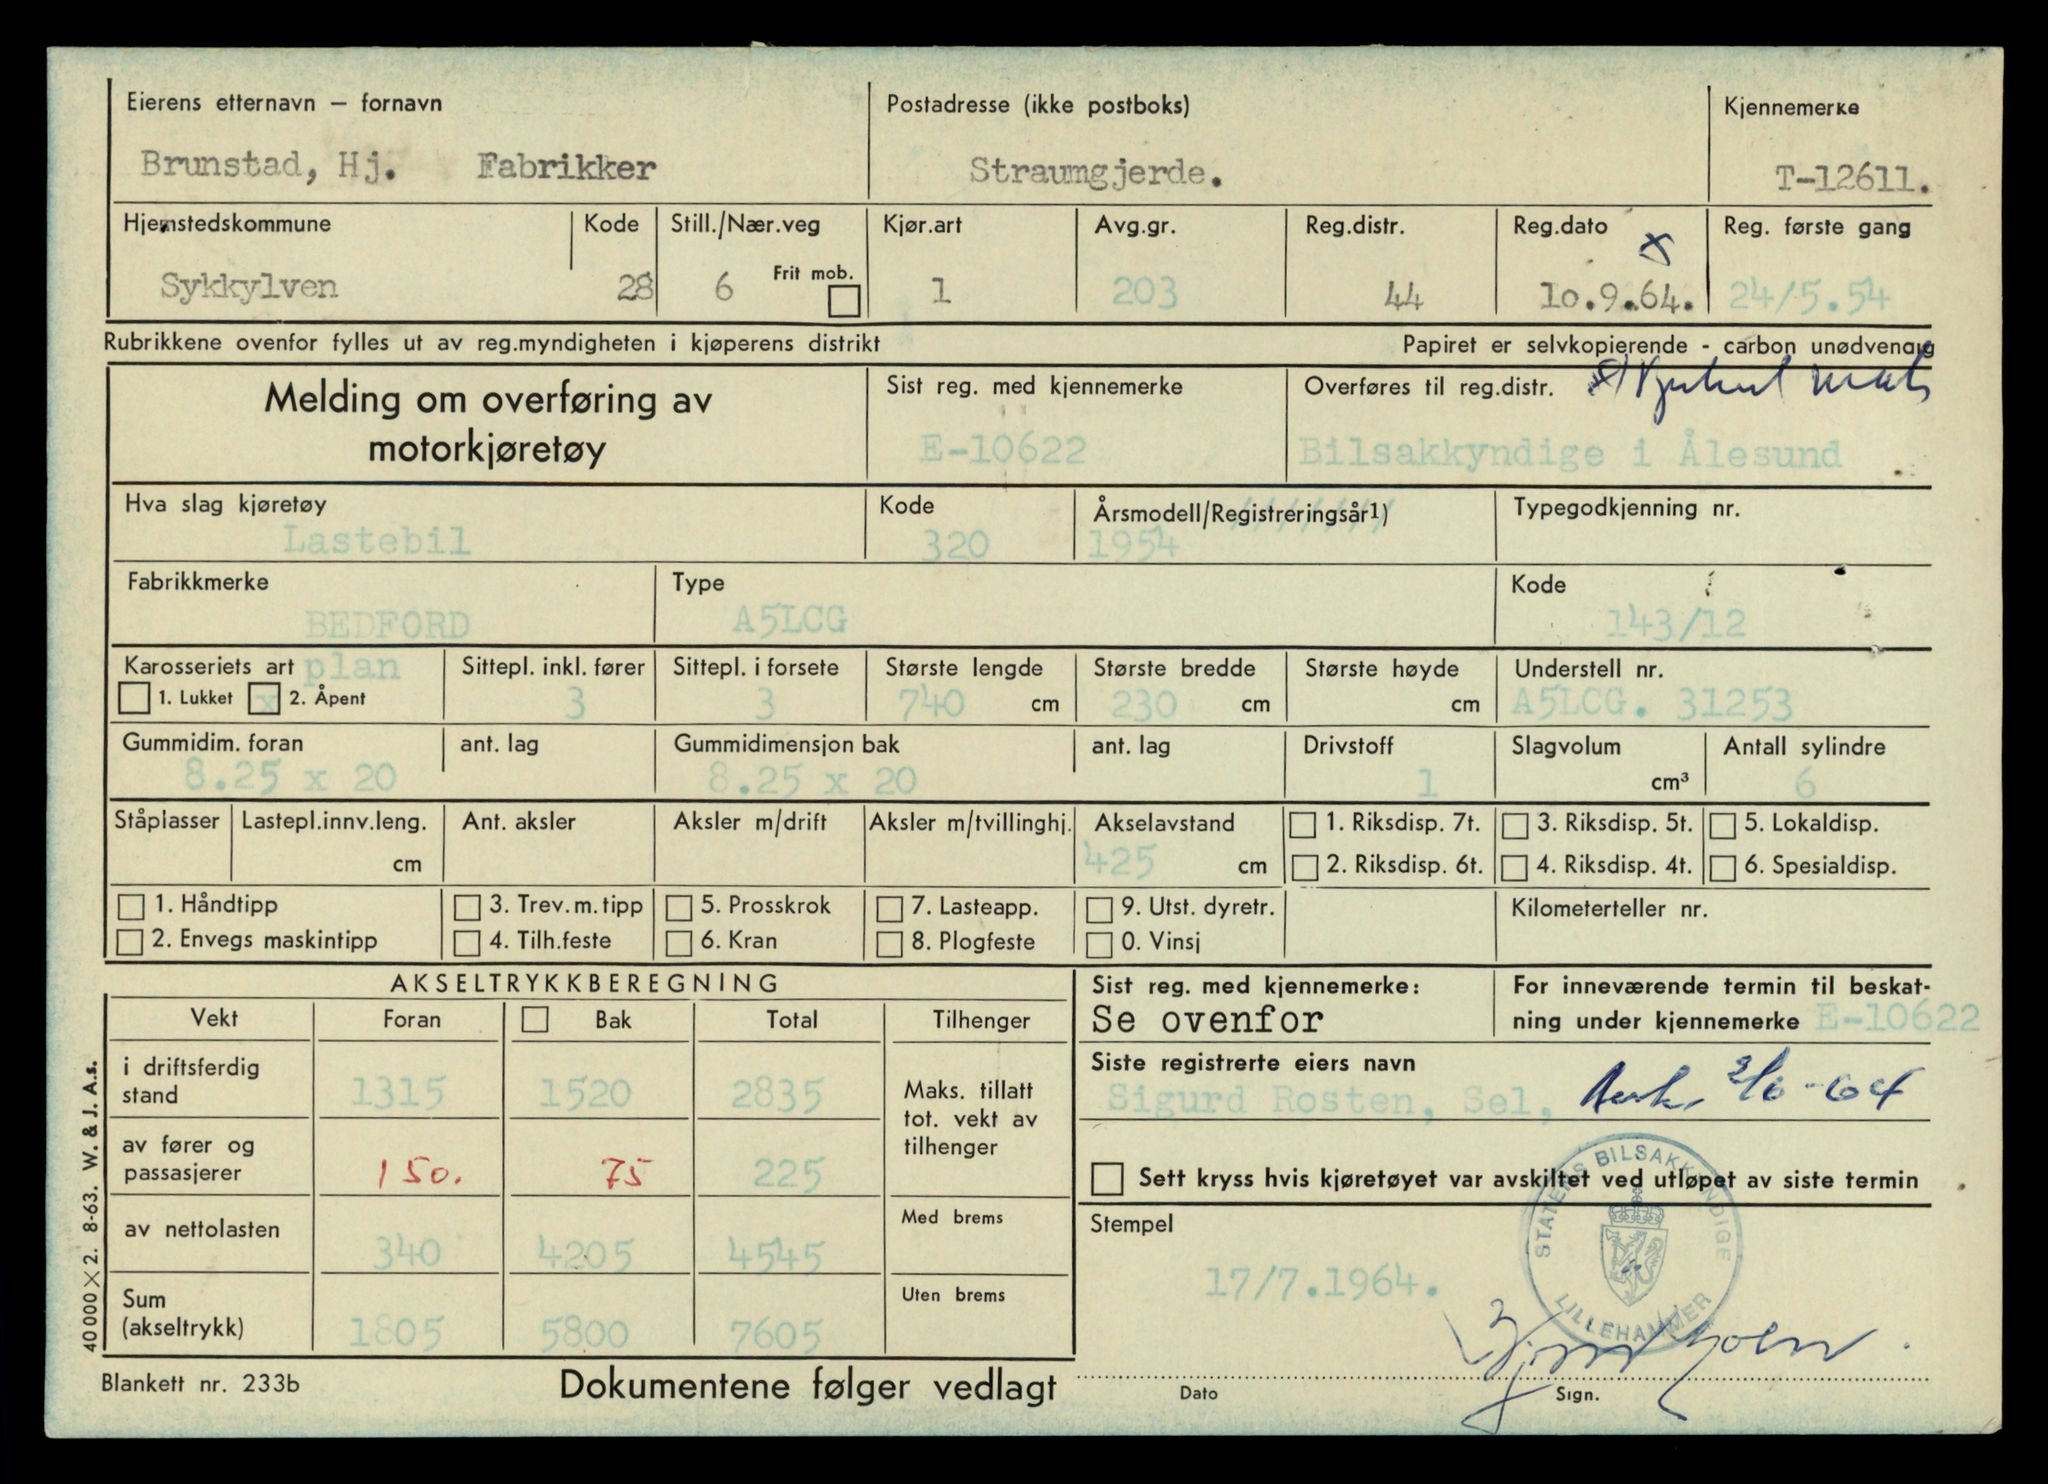 Eierens etternavn – fornavn
Postadresse (ikke postboks)
Kjennemerke
Brunstad, Hj. Fabrikker
Straumgjerde.
T-12611.
Hjemstedskommune
Kode
Still./Nær.veg
Kjør.art
Avg.gr.
Reg.distr.
Reg.dato
Reg. første gang
Sykkylven
28
6
Frit mob.
1
203
44
10.9.64.
24/5.54
Rubrikkene ovenfor fylles ut av reg.myndigheten i kjøperens distrikt
Papiret er selvkopierende - carbon unødvendig
Melding om overføring av
motorkjøretøy
Sist reg. med kjennemerke
E-10622
Overføres til reg.distr.
Bilsakkyndige i Ålesund
Hva slag kjøretøy
Lastebil
Kode
320
Årsmodell/Registreringsår1)
1954
Typegodkjenning nr.
Fabrikkmerke
BEDFORD
Type
A5LCG
Kode
143/12
Karosseriets art plan
1. Lukket x 2. Åpent
Sittepl. inkl. fører
3
Sittepl. i forsete
3
Største lengde
740 cm
Største bredde
230 cm
Største høyde
cm
Understell nr.
A5LCG. 31253
Gummidim. foran
8.25 x 20
ant. lag
Gummidimensjon bak
8.25 x 20
ant. lag
Drivstoff
1
Slagvolum
cm³
Antall sylindre
6
Ståplasser
Lastepl.innv.leng.
cm
Ant. aksler
Aksler m/drift
Aksler m/tvillinghj.
Akselavstand
425 cm
1. Riksdisp. 7t.
2. Riksdisp. 6t.
3. Riksdisp. 5t.
4. Riksdisp. 4t.
5. Lokaldisp.
6. Spesialdisp.
1. Håndtipp
2. Envegs maskintipp
3. Trev.m.tipp
4. Tilh.feste
5. Prosskrok
6. Kran
7. Lasteapp.
8. Plogfeste
9. Utst. dyretr.
0. Vinsj
Kilometerteller nr.
AKSELTRYKKBEREGNING
Vekt Foran Bak Total Tilhenger
i driftsferdig
stand
1315 1520 2835
Maks. tillatt
tot. vekt av
tilhenger
av fører og
passasjerer
150. 75 225
av nettolasten
340 4205 4545
Med brems
Sum
(akseltrykk)
1805 5800 7605
Uten brems
Sist reg. med kjennemerke:
Se ovenfor
For inneværende termin til beskat-
ning under kjennemerke E-10622
Siste registrerte eiers navn
Sigurd Rosten, Sel,
Sett kryss hvis kjøretøyet var avskiltet ved utløpet av siste termin
Stempel
17/7.1964.
STATENS BILSAKKYNDIGE
LILLEHAMMER
Dato
Sign.
40000 × 2. 8-63. W. & J. A.s.
Blankett nr. 233b
Dokumentene følger vedlagt